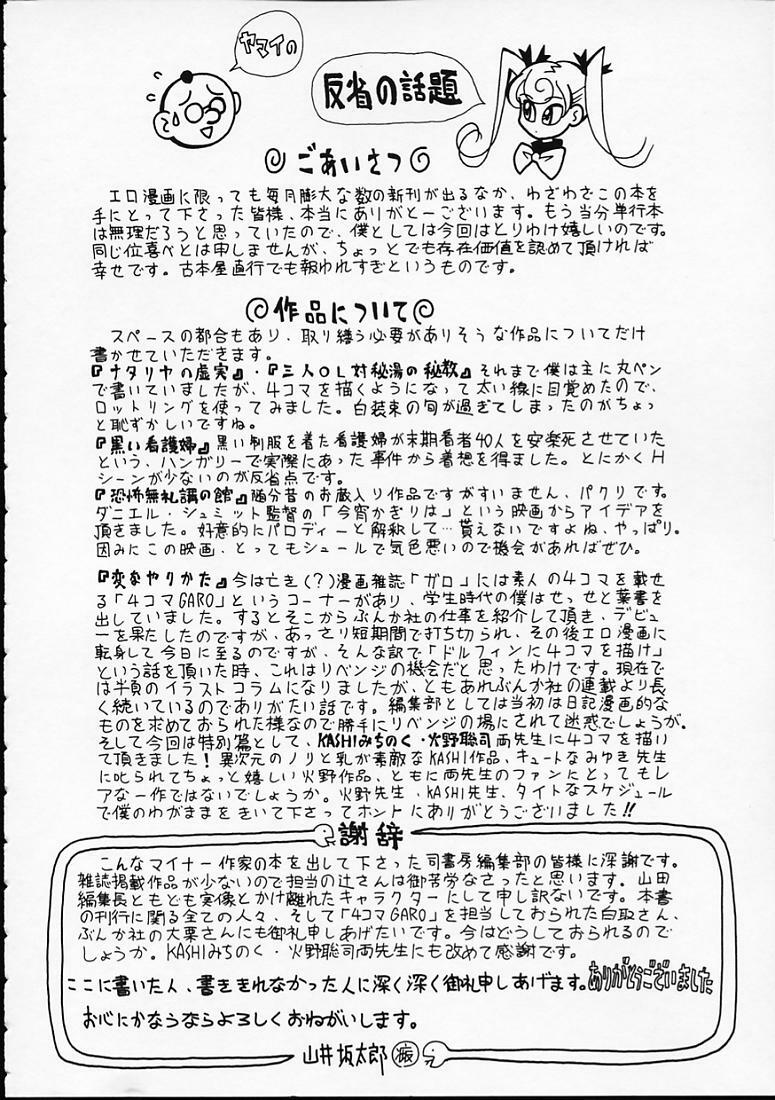 ヤマイの
反省の話題
ごあいさつ
エロ漫画に限っても毎月膨大な数の新刊が出るなか、わざわざこの本を
手にとって下さった皆様、本当にありがとーございます。もう当分単行本
は無理だろうと思っていたので、僕としては今回はとりわけ嬉しいのです。
同じ位喜べとは申しませんが、ちょっとでも存在価値を認めて頂ければ
幸せです。古本屋直行でも報われすぎというものです。
作品について
スペースの都合もあり、取り繕う必要がありそうな作品についてだけ
書かせていただきます。
『ナタリヤの虚実』・『三人OL対秘湯の秘教』それまで僕は主に丸ペン
で書いていましたが、4コマを描くようになって太い線に目覚めたので、
ロットリングを使ってみました。白装束の旬が過ぎてしまったのがちょっ
と恥ずかしいですね。
『黒い看護婦』黒い制服を着た看護婦が末期患者40人を安楽死させていた
という、ハンガリーで実際にあった事件から着想を得ました。とにかくH
シーンが少ないのが反省点です。
『恐怖無礼講の館』随分昔のお蔵入り作品ですがすいません、パクリです。
ダニエル・シュミット監督の「今宵かぎりは」という映画からアイデアを
頂きました。好意的にパロディーと解釈して…貰えないですよね、やっぱり。
因みにこの映画、とってもシュールで気色悪いので機会があればぜひ。
『変なやりかた』今は亡き(?)漫画雑誌「ガロ」には素人の4コマを載せ
る「4コマGARO」というコーナーがあり、学生時代の僕はせっせと葉書を
出していました。するとそこからぶんか社の仕事を紹介して頂き、デビュ
ーを果たしたのですが、あっさり短期間で打ち切られ、その後エロ漫画に
転身して今日に至るのですが、そんな訳で「ドルフィンに4コマを描け」
という話を頂いた時、これはリベンジの機会だと思ったわけです。現在で
は半頁のイラストコラムになりましたが、ともあれぶんか社の連載より長
く続いているのでありがたい話です。編集部としては当初は日記漫画的な
ものを求めておられた様なので勝手にリベンジの場にされて迷惑でしょうが。
そして今回は特別篇として、KASHIみちのく・火野聡司両先生に4コマを描い
て頂きました！異次元のノリと乳が素敵なKASHI作品、キュートなみゆき先生
に叱られてちょっと嬉しい火野作品、ともに両先生のファンにとってもレ
アな一作ではないでしょうか。火野先生、KASHI先生、タイトなスケジュール
で僕のわがままをきいて下さってホントにありがとうございました!!
謝辞
こんなマイナー作家の本を出して下さった司書房編集部の皆様に深謝です。
雑誌掲載作品が少ないので担当の辻さんは御苦労なさったと思います。山田
編集長ともども実像とかけ離れたキャラクターにして申し訳ないです。本書
の刊行に関る全ての人々、そして「4コマGARO」を担当しておられた白取さん、
ぶんか社の大栗さんにも御礼申しあげたいです。今はどうしておられるので
しょうか。KASHIみちのく・火野聡司両先生にも改めて感謝です。
ここに書いた人、書ききれなかった人に深く深く御礼申しあげます。ありがとうございました
お心にかなうならよろしくおねがいします。
山井坂太郎